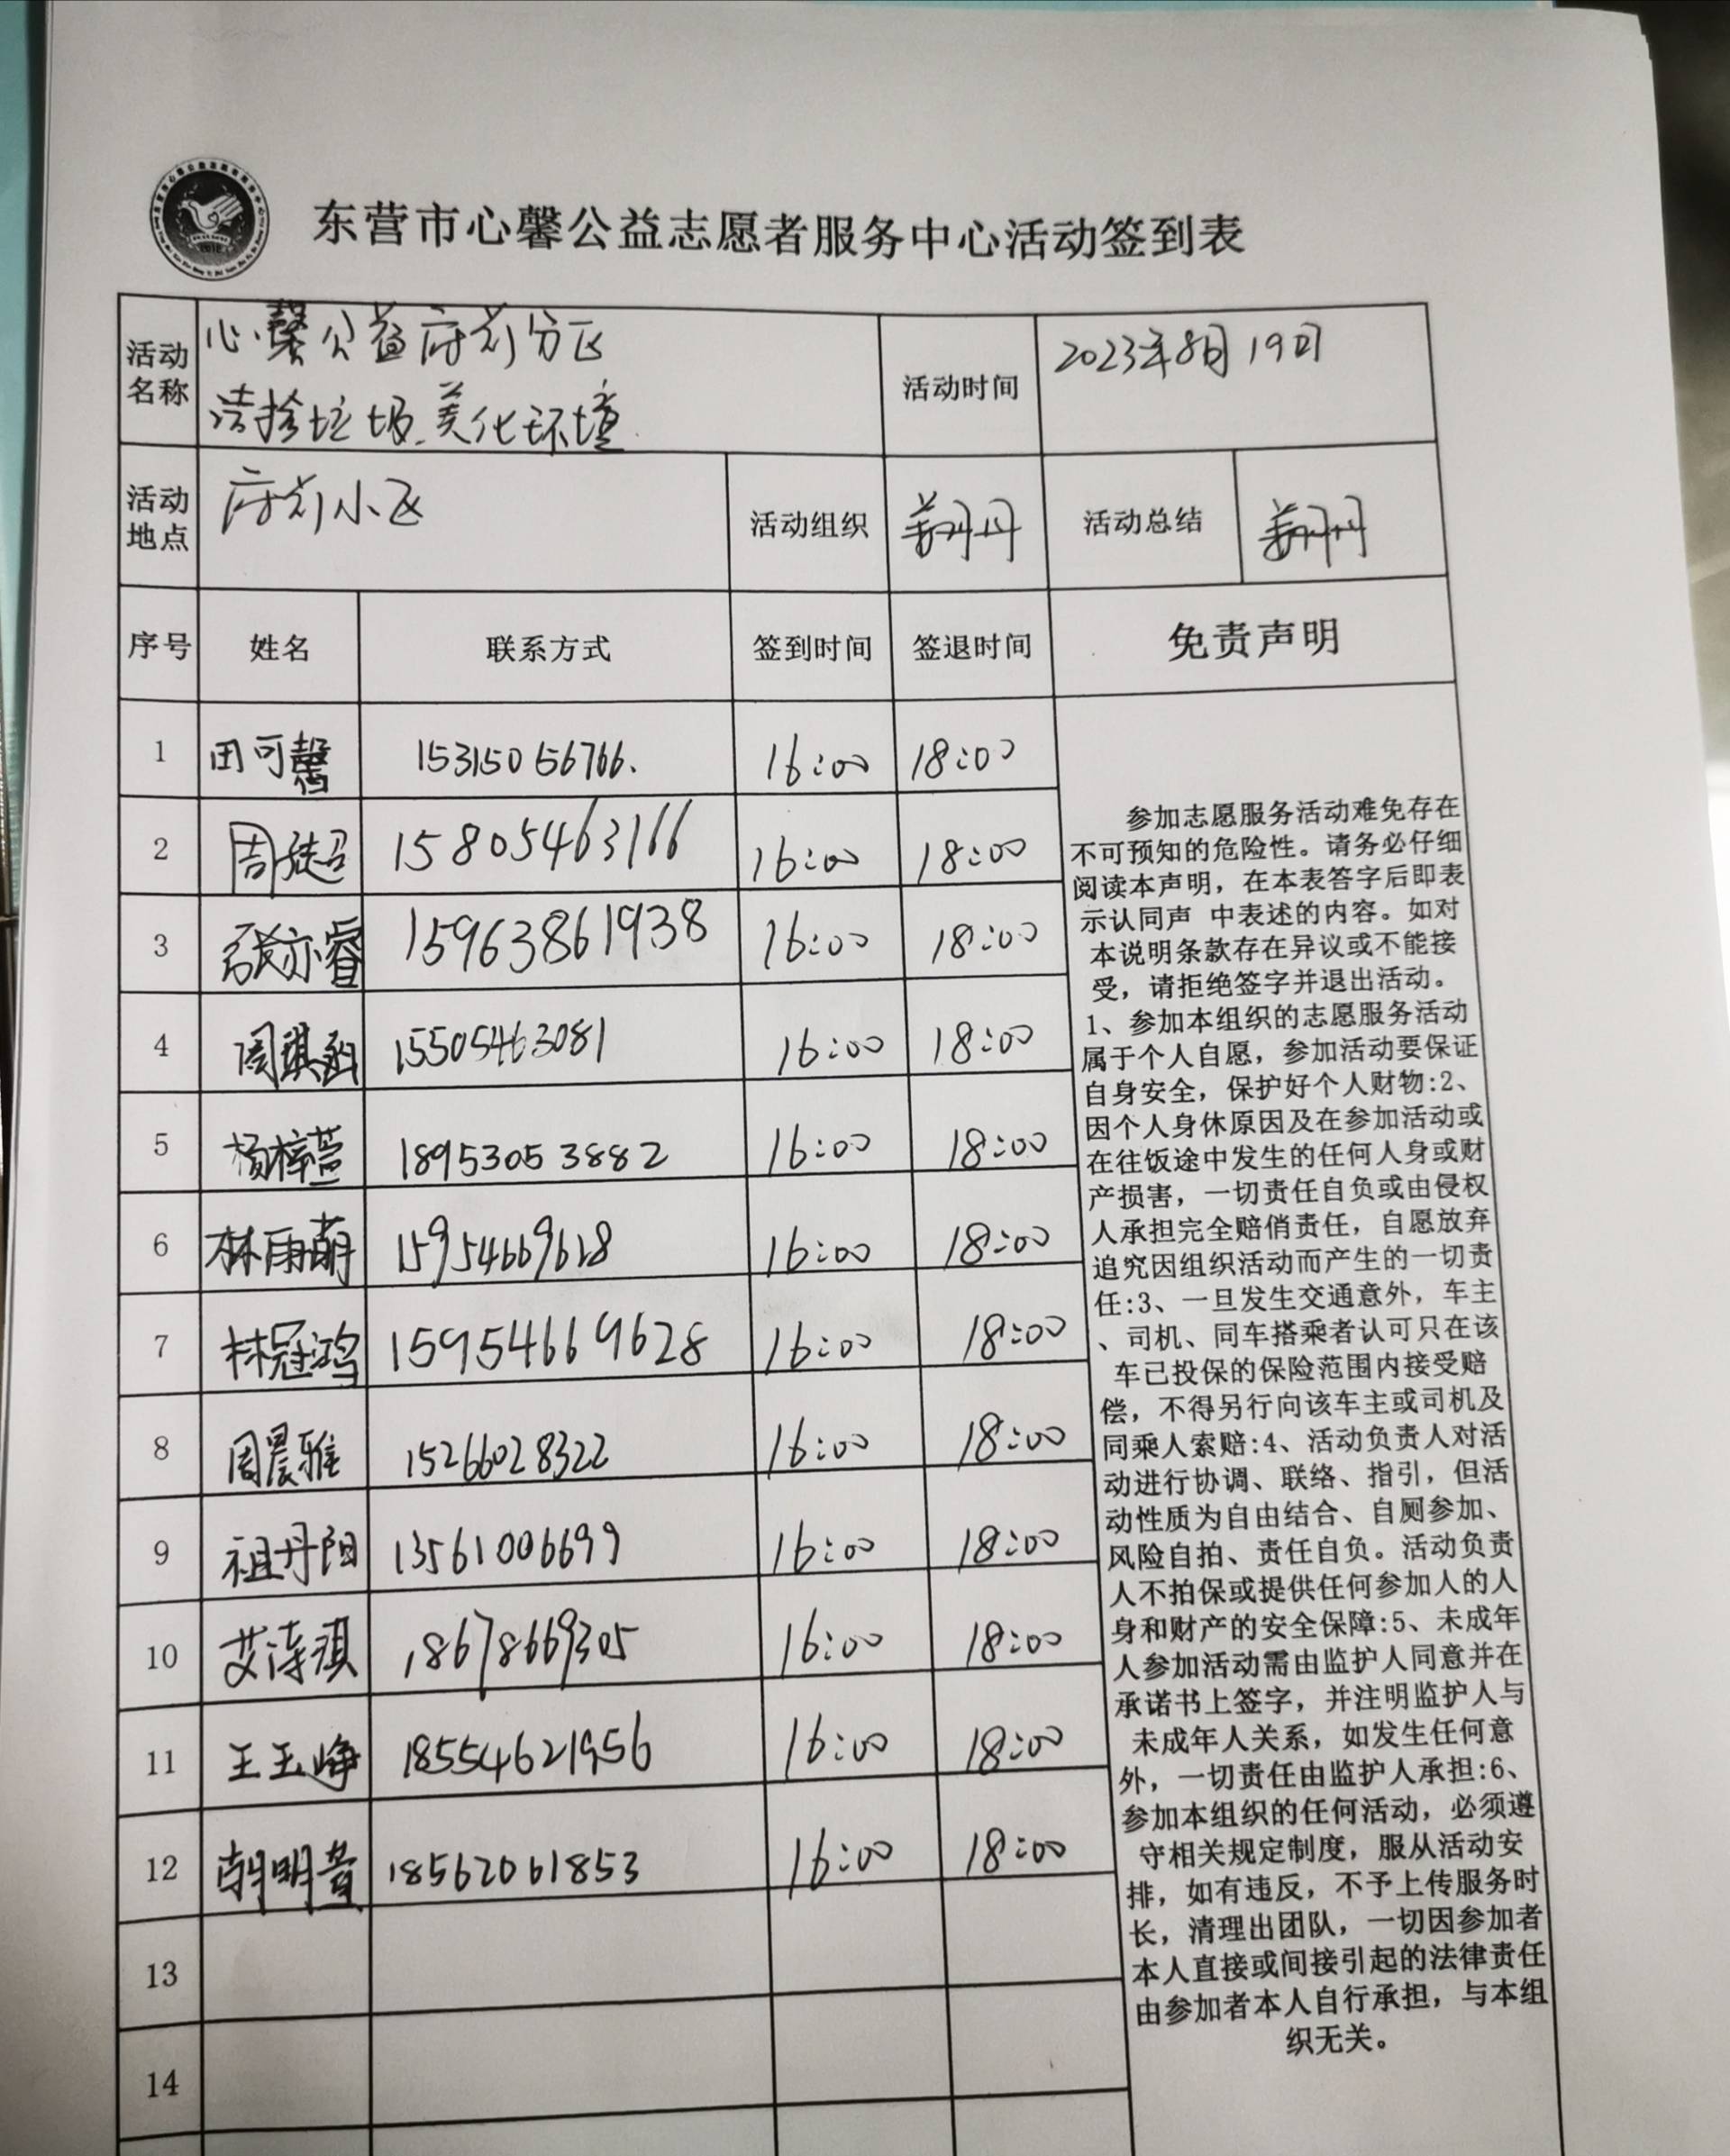 东营市心馨公益志愿者服务中心活动签到表
活动名称 心馨公益府前分区 活动时间 2023年8月19日
清捡垃圾.美化环境
活动地点 府前小区 活动组织 活动总结
序号 姓名 联系方式 签到时间 签退时间 免责声明
1 田可馨 15315056766. 16:00 18:00
2 15805463166 16:00 18:00
3 张亦睿 15963861938 16:00 18:00
4 周琪涵 15505463081 16:00 18:00
5 杨梓萱 18953053882 16:00 18:00
6 林雨萌 15954669628 16:00 18:00
7 林冠鸿 15954669628 16:00 18:00
8 周晨雅 15266028322 16:00 18:00
9 祖丹阳 13561006699 16:00 18:00
10 艾涛琪 18678669305 16:00 18:00
11 王玉峥 18554621956 16:00 18:00
12 18562061853 16:00 18:00
13
14
参加志愿服务活动难免存在
不可预知的危险性。请务必仔细
阅读本声明，在本表答字后即表
示认同声 中表述的内容。如对
本说明条款存在异议或不能接
受，请拒绝签字并退出活动。
1、参加本组织的志愿服务活动
属于个人自愿，参加活动要保证
自身安全，保护好个人财物:2、
因个人身休原因及在参加活动或
在往饭途中发生的任何人身或财
产损害，一切责任自负或由侵权
人承担完全赔俏责任，自愿放弃
追究因组织活动而产生的一切责
任:3、一旦发生交通意外，车主
、司机、同车搭乘者认可只在该
车已投保的保险范围内接受赔
偿，不得另行向该车主或司机及
同乘人索赔:4、活动负责人对活
动进行协调、联络、指引，但活
动性质为自由结合、自厕参加、
风险自拍、责任自负。活动负责
人不拍保或提供任何参加人的人
身和财产的安全保障:5、未成年
人参加活动需由监护人同意并在
承诺书上签字，并注明监护人与
未成年人关系，如发生任何意
外，一切责任由监护人承担:6、
参加本组织的任何活动，必须遵
守相关规定制度，服从活动安
排，如有违反，不予上传服务时
长，清理出团队，一切因参加者
本人直接或间接引起的法律责任
由参加者本人自行承担，与本组
织无关。